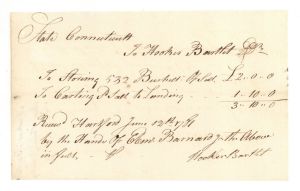 State Connecticutt
To Hooker Bartlet Dr
To Storing 532 Bushels of Salt £2.0.0
To Carting D Salt to Landing 1.10.0
3.10.0
Hartford June 12th
by the Hands of Eben Barnard the Above
in full
Hooker Bartlet